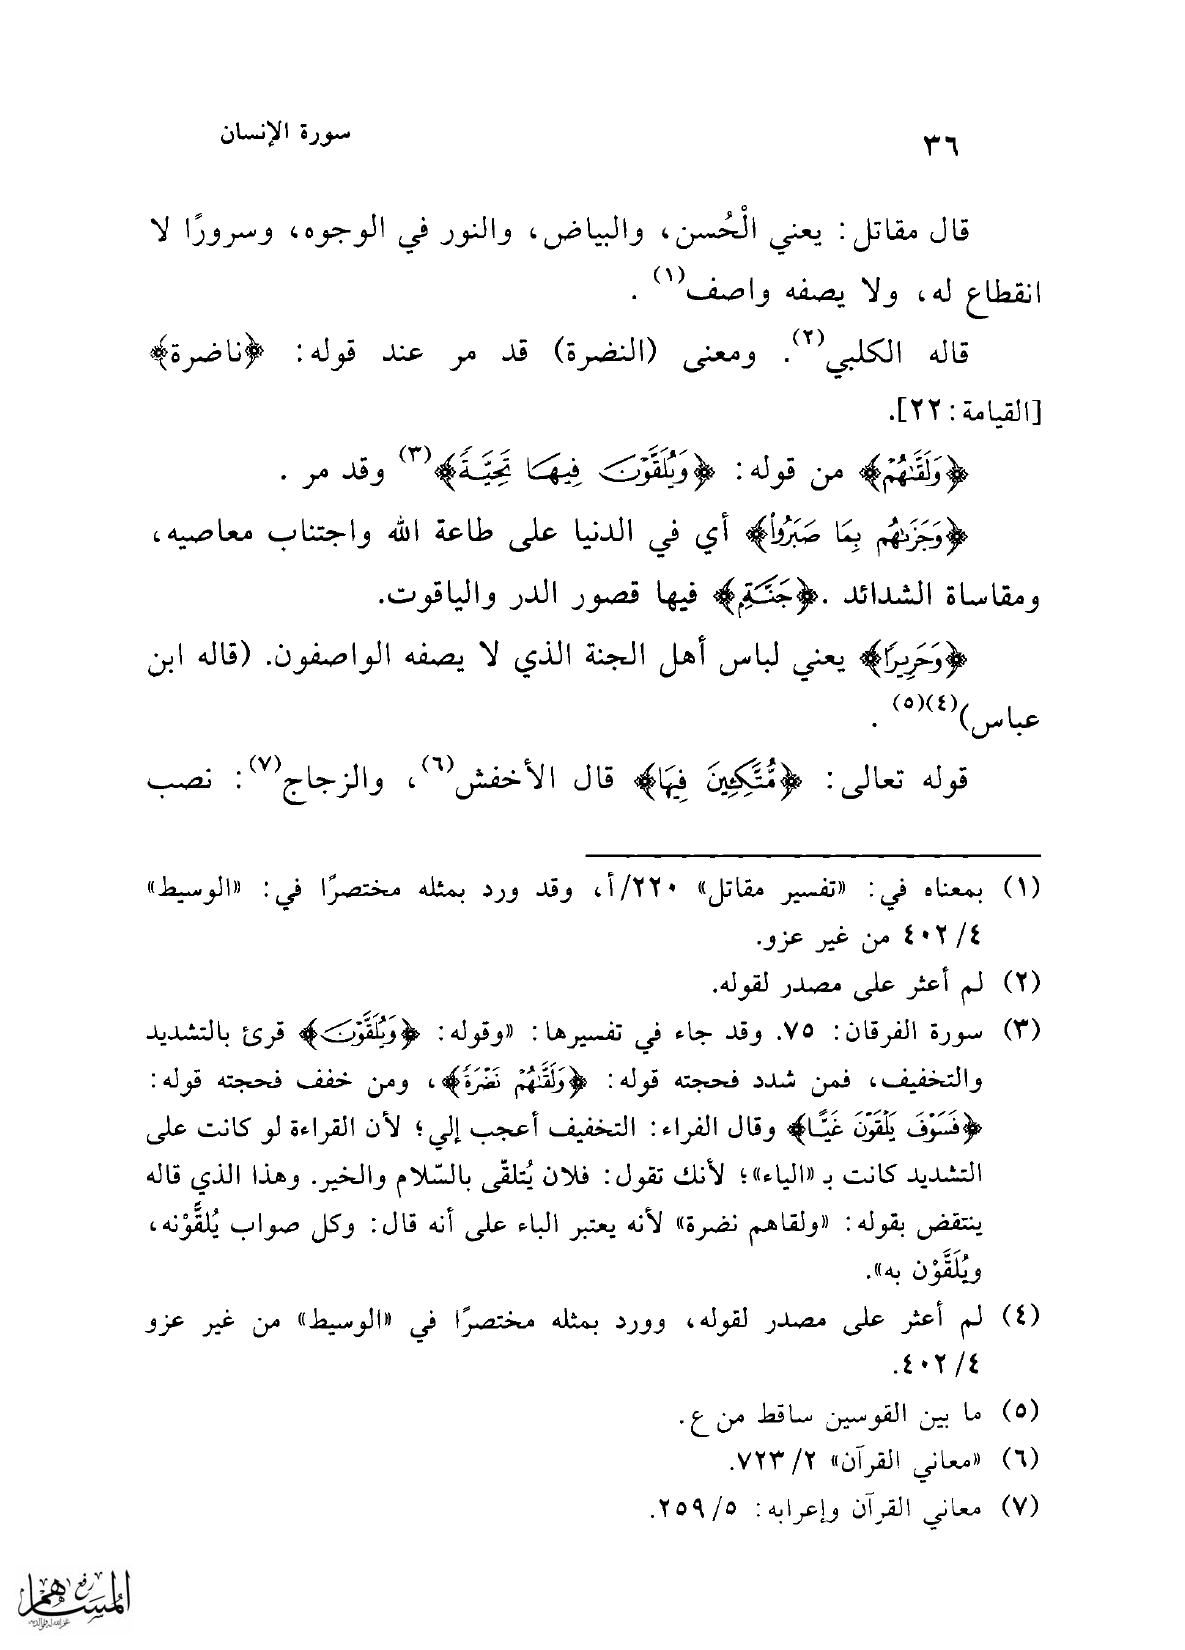 ٣٦
سورة الإنسان
قال مقاتل: يعني الْحُسن، والبياض، والنور في الوجوه، وسرورًا لا
انقطاع له، ولا يصفه واصف(١) .
قاله الكلبي(٢). ومعنى (النضرة) قد مر عند قوله: ﴿ناضرة﴾
[القيامة: ٢٢].
﴿وَلَقَّىٰهُمْ﴾ من قوله: ﴿وَيُلَقَّوْنَ فِيهَا تَحِيَّةً﴾(٣) وقد مر .
﴿وَجَزَىٰهُم بِمَا صَبَرُوا۟﴾ أي في الدنيا على طاعة الله واجتناب معاصيه،
ومقاساة الشدائد .﴿جَنَّةٍ﴾ فيها قصور الدر والياقوت.
﴿وَحَرِيرًا﴾ يعني لباس أهل الجنة الذي لا يصفه الواصفون. (قاله ابن
عباس)(٤)(٥) .
قوله تعالى: ﴿مُّتَّكِـِٔينَ فِيهَا﴾ قال الأخفش(٦)، والزجاج(٧): نصب
(١) بمعناه في: «تفسير مقاتل» ٢٢٠/أ، وقد ورد بمثله مختصرًا في: «الوسيط»
٤/ ٤٠٢ من غير عزو.
(٢) لم أعثر على مصدر لقوله.
(٣) سورة الفرقان: ٧٥. وقد جاء في تفسيرها: «وقوله: ﴿وَيُلَقَّوْنَ﴾ قرئ بالتشديد
والتخفيف، فمن شدد فحجته قوله: ﴿وَلَقَّىٰهُمْ نَضْرَةً﴾، ومن خفف فحجته قوله:
﴿فَسَوْفَ يَلْقَوْنَ غَيًّا﴾ وقال الفراء: التخفيف أعجب إلي؛ لأن القراءة لو كانت على
التشديد كانت بـ «الياء»؛ لأنك تقول: فلان يُتلقّى بالسّلام والخير. وهذا الذي قاله
ينتقض بقوله: «ولقاهم نضرة» لأنه يعتبر الباء على أنه قال: وكل صواب يُلقَّوْنه،
ويُلَقَّوْن به».
(٤) لم أعثر على مصدر لقوله، وورد بمثله مختصرًا في «الوسيط» من غير عزو
٤/ ٤٠٢.
(٥) ما بين القوسين ساقط من ع.
(٦) «معاني القرآن» ٢/ ٧٢٣.
(٧) معاني القرآن وإعرابه: ٥/ ٢٥٩.